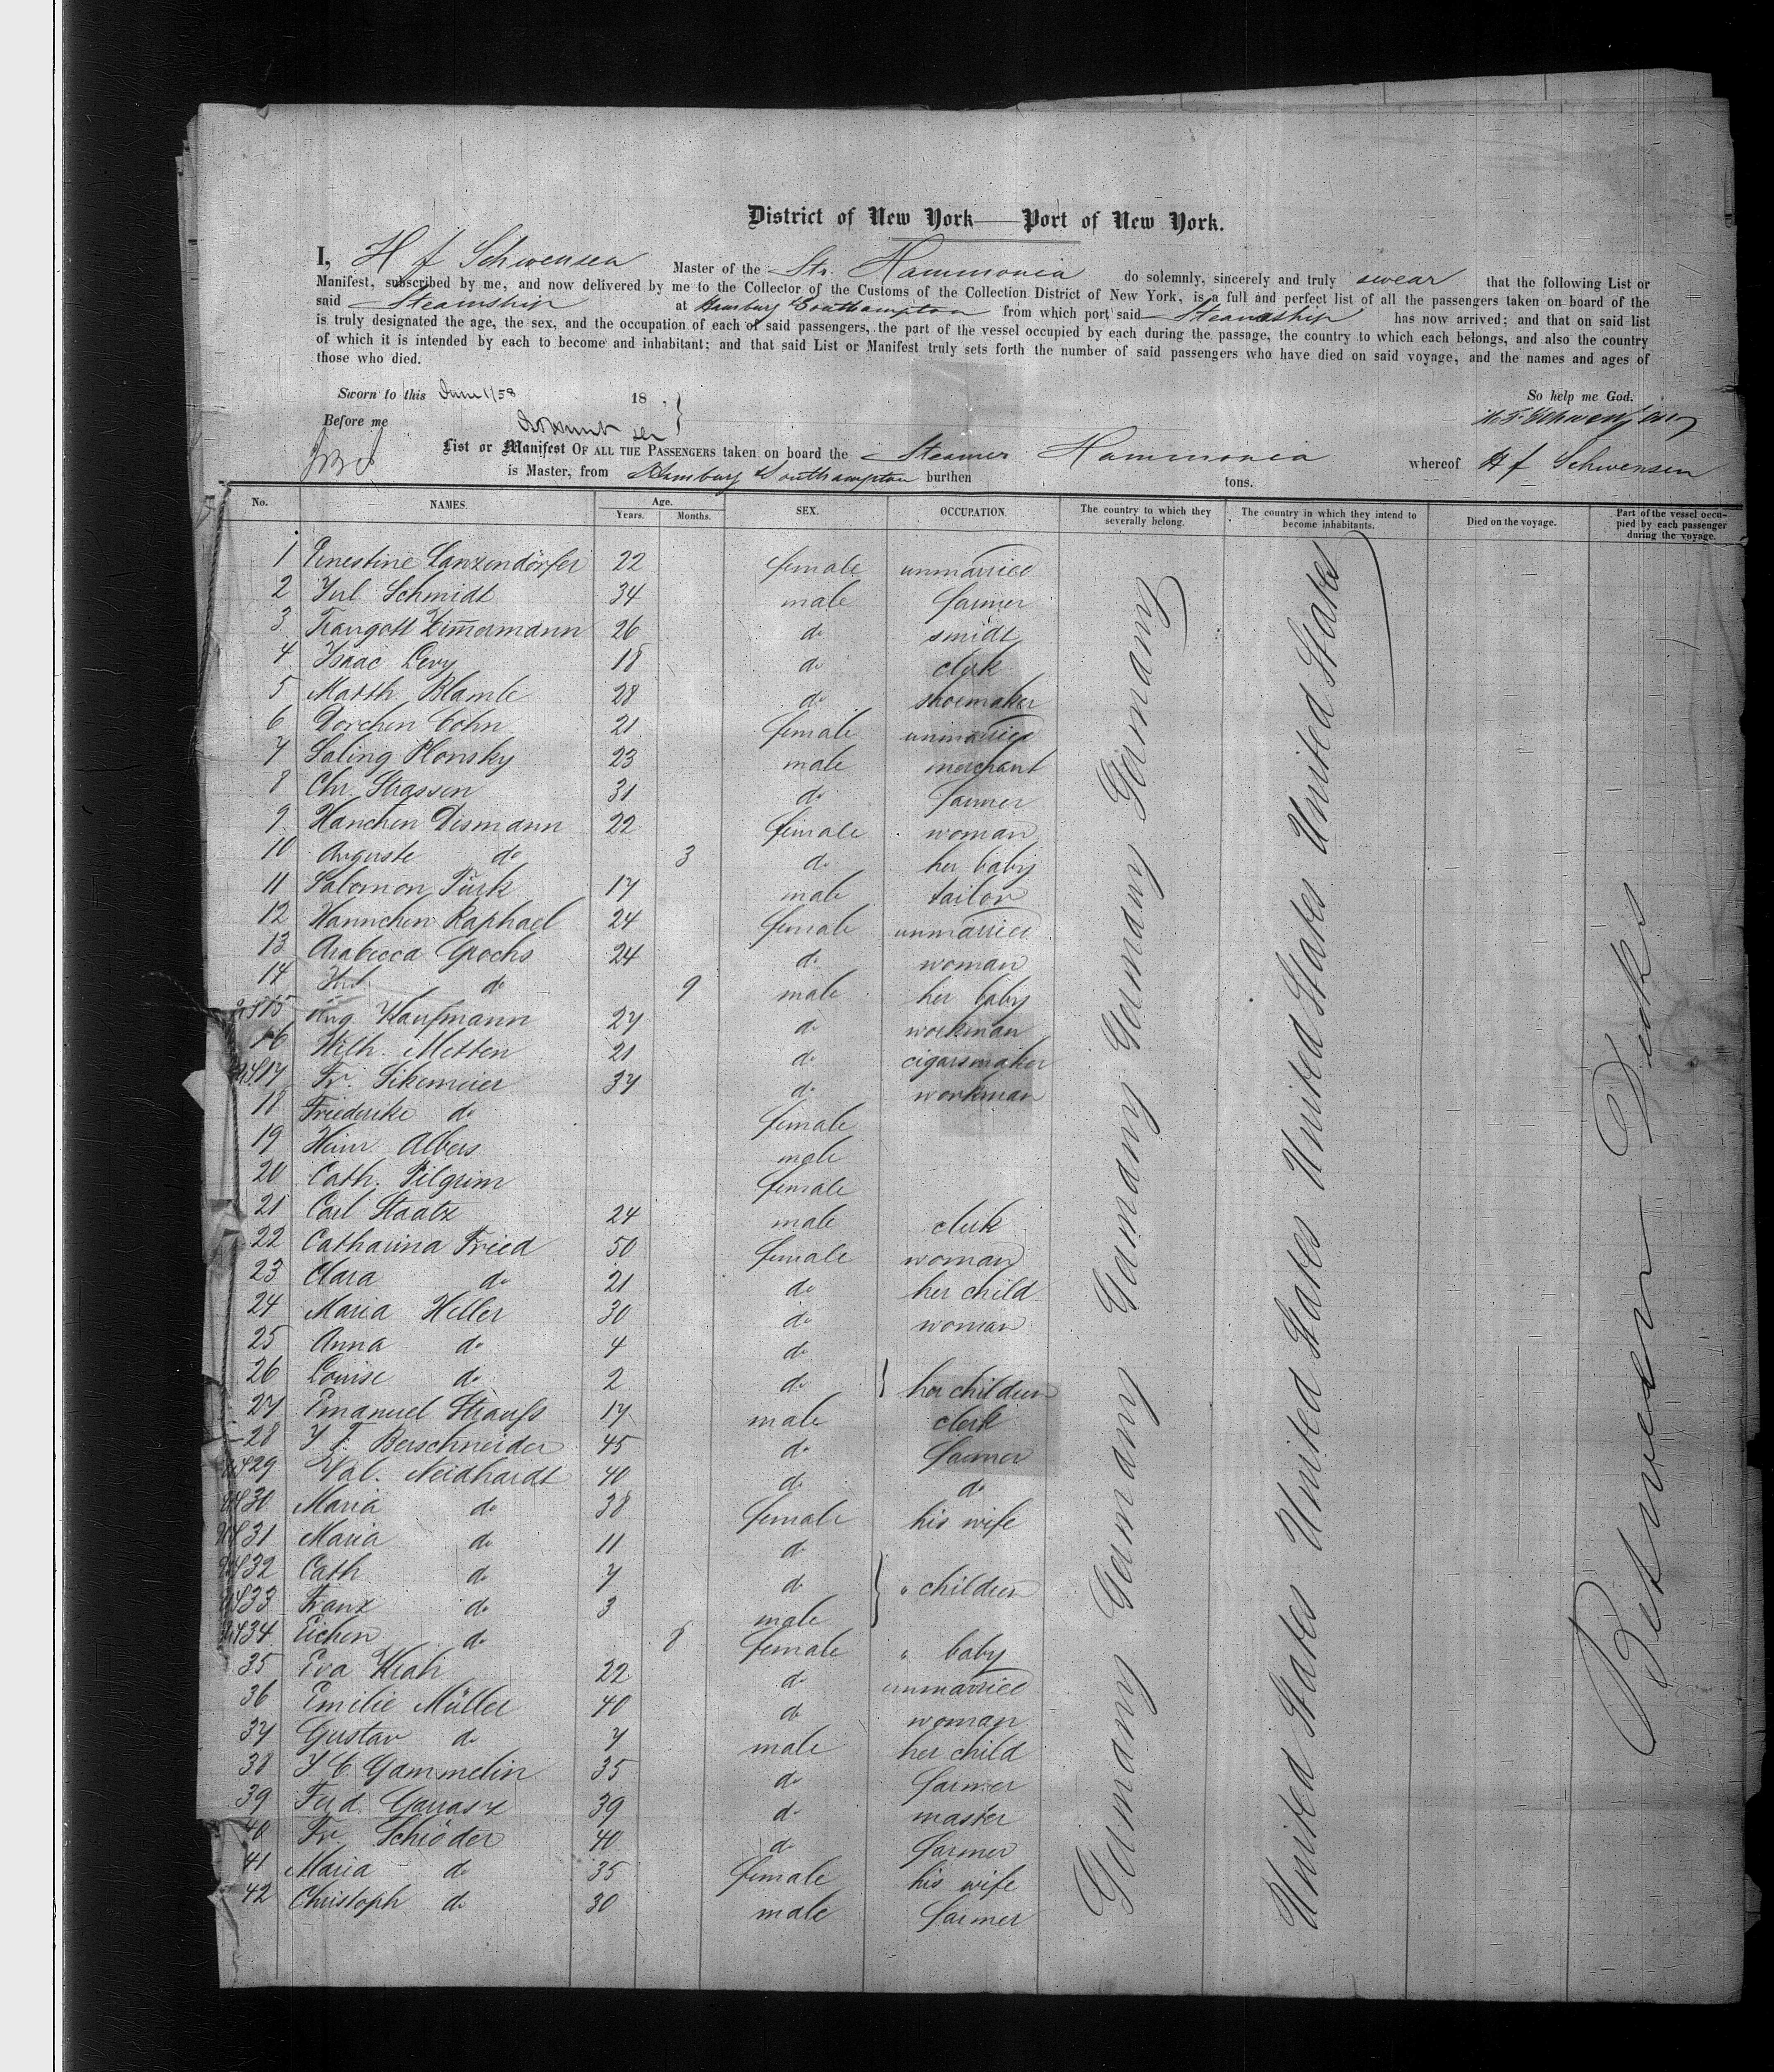 District of New York—Port of New York.
I, H f Schwensen Master of the Str. Hammonia do solemnly, sincerely and truly swear that the following List or
Manifest, subscribed by me, and now delivered by me to the Collector of the Customs of the Collection District of New York, is a full and perfect list of all the passengers taken on board of the
said Steamship at Hamburg & Southampton from which port said Steamship has now arrived; and that on said list
is truly designated the age, the sex, and the occupation of each of said passengers, the part of the vessel occupied by each during the passage, the country to which each belongs, and also the country
of which it is intended by each to become and inhabitant; and that said List or Manifest truly sets forth the number of said passengers who have died on said voyage, and the names and ages of
those who died.
Sworn to this June 1/58 18 So help me God.
Before me H. F. Schwensen
List or Manifest OF ALL THE PASSENGERS taken on board the Steamer Hammonia whereof H f Schwensen
is Master, from Hamburg & Southampton burthen tons.
No. NAMES. Age. Years. Months. SEX. OCCUPATION. The country to which they severally belong. The country in which they intend to become inhabitants. Died on the voyage. Part of the vessel occupied by each passenger during the voyage.
1 Ernestine Lanzendörfer 22 female unmarried
2 Jul Schmidt 34 male farmer
3 Traugott Zimmermann 26 do smidt
4 Isaac Levy 18 do clerk
5 Matth. Blamle 28 do shoemaker
6 Dorchen Cohn 21 female unmarried
7 Saling Plonsky 23 male merchant
8 Chr. Strassen 31 do farmer
9 Hanchen Dismann 22 female woman
10 Auguste do 3 do her baby
11 Salomon Türk 17 male tailor
12 Hannchen Raphael 24 female unmarried
13 Arabecca Grochs 24 do woman
14 do 9 male her baby
15 Aug Kaufmann 27 do workman
16 Wilh. Metten 21 do cigarsmaker
17 Fr. Sikemeier 37 do workman
18 Friederike do female
19 Heinr. Albers male
20 Cath. Pilgrim female
21 Carl Staatz 24 male clerk
22 Catharina Fried 50 female woman
23 Clara do 21 do her child
24 Maria Heller 30 do woman
25 Anna do 4 do
26 Louise do 2 do her children
27 Emanuel Strauss 17 male clerk
28 J F. Berschneider 45 do farmer
29 Val. Neidhardt 40 do do
30 Maria do 38 female his wife
31 Maria do 11 do
32 Cath do 7 do " children
33 Franz do 3 male
34 Eichen do 8 female " baby
35 Eva Krah 22 do unmarried
36 Emilie Müller 40 do woman
37 Gustav do 7 male her child
38 J. C Gammelin 35 do farmer
39 Ferd. Garrasz 39 do master
40 Fr. Schröder 40 do farmer
41 Maria do 35 female his wife
42 Christoph do 30 male farmer
Germany Germany Germany Germany Germany Germany Germany
United States United States United States United States United States
Between Decks